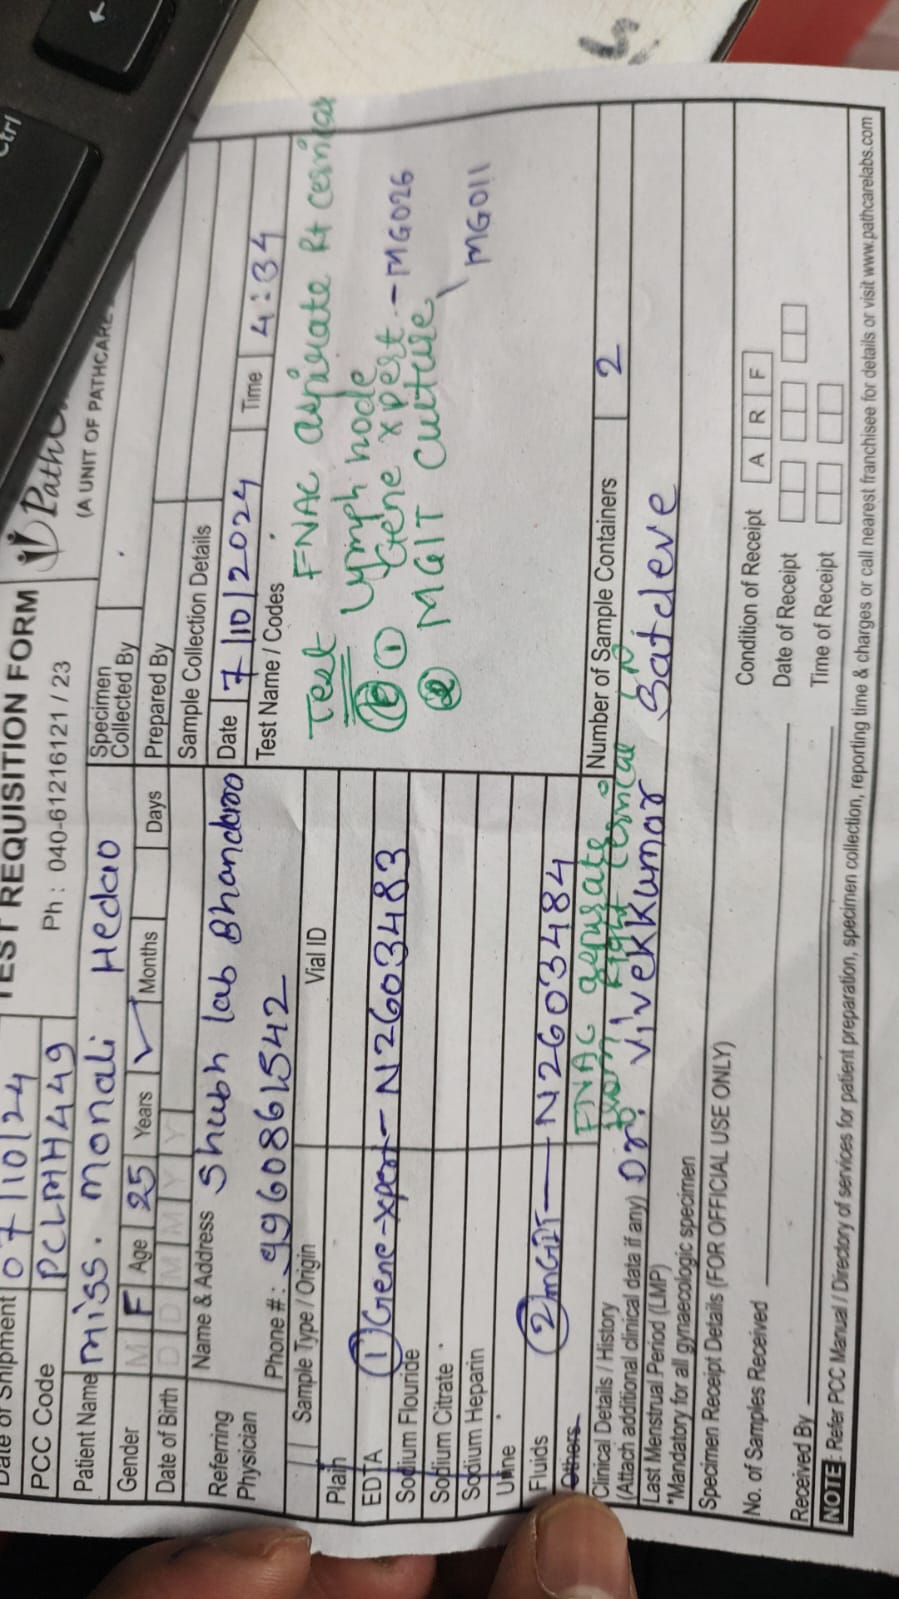 Ctrl
TEST REQUISITION FORM
(A UNIT OF PATHCARE
Date of Shipment 07/10/24
PCC Code PCLMH449
Ph : 040-61216121 / 23
Patient Name Miss. Monali Hedao
Gender M F Age 25 Years Months Days
Date of Birth D D M M Y Y
Specimen
Collected By
Prepared By
Referring
Physician
Name & Address Shubh lab Bhandara
Phone #: 9960861542
Sample Collection Details
Date 7/10/2024 Time 4:34
Sample Type / Origin Vial ID
Plain
EDTA ① Gene-xpert - N2603483
Sodium Flouride
Sodium Citrate
Sodium Heparin
Urine
Fluids ② MGIT - N2603484
Others
Test Name / Codes
Test FNAC aspirate Rt cervical
lymph node
① Gene xpert - MG026
② MGIT culture
MG011
Number of Sample Containers 2
Clinical Details / History
(Attach additional clinical data if any)
FNAC aspirate
from right cervical LN
Dr. Vivekkumar Satdeve
Last Menstrual Period (LMP)
*Mandatory for all gynaecologic specimen
Specimen Receipt Details (FOR OFFICIAL USE ONLY)
No. of Samples Received
Received By
Condition of Receipt A R F
Date of Receipt
Time of Receipt
NOTE : Refer PCC Manual / Directory of services for patient preparation, specimen collection, reporting time & charges or call nearest franchisee for details or visit www.pathcarelabs.com